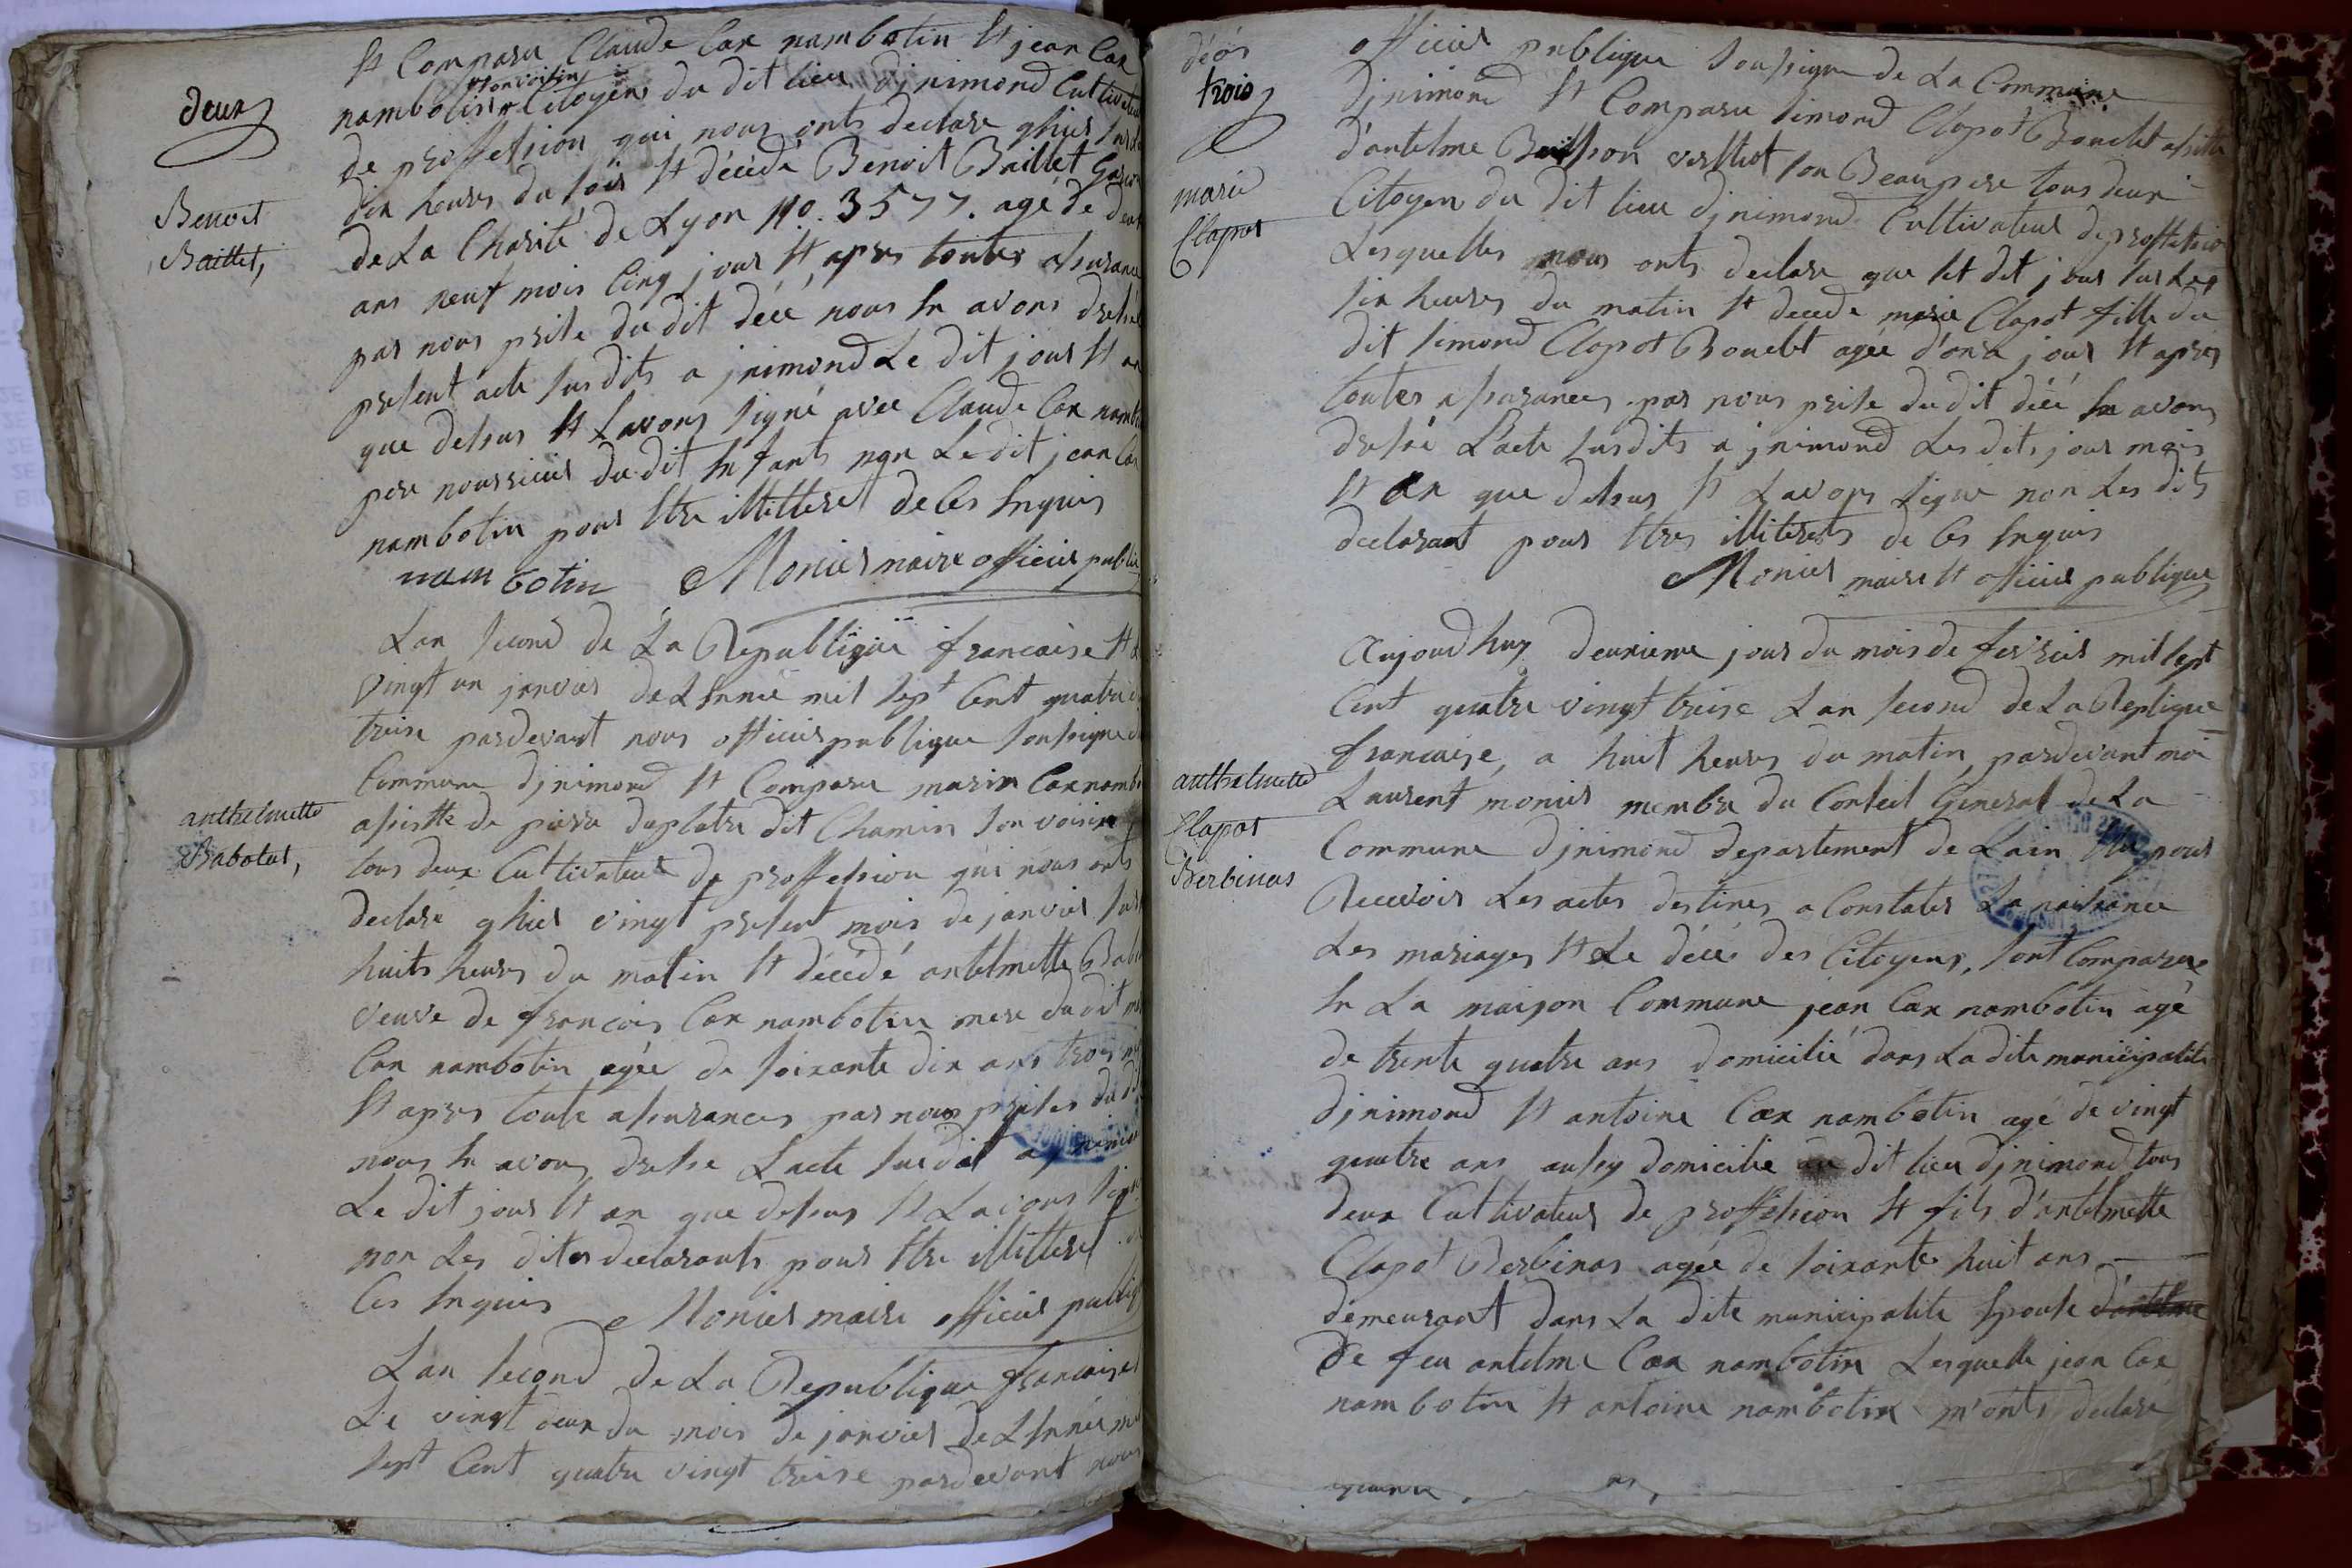 deux
Benoit
Baillet,
anthelmette
Babolat,
Et Comparu Claude Cax nambotin Et jean Cax
nambotin son voisin Citoyens du dit lieu djnimond Cultivateur
de proffession qui nous onts declare qhier sur Le
dix heures du soir Et décédé Benoit Baillet Garçon
de La Charité de Lyon No. 3577. agé de deux
ans neuf mois Cinq jour Et apres toutes assurance
par nous prise du dit décé nous En avons dressé
present acte susdits a jnimond Le dit jour Et an
que dessus Et Lavons signé avec Claude Cax nambotin
pere nourricier du dit Enfants non Le dit jean Cax
nambotin pour Etre illitteret de Ces Enquis
nambotin Monier maire officier public
Lan second de La Republique francaise Et Le
vingt un janvier de LEnnée mil sept Cent quatre
treise pardevant nous officier publique soussigne
Commune djnimond Et Comparu marin Cax nambotin
assistte de piere duplatre dit Chamin son voisin
tous deux Cultivateur de proffession qui nous onts
declare qhier vingt present mois de janvier sur
huits heures du matin Et décédé antelmette Babolat
veuve de francois Cax nambotin mere du dit
Cax nambotin agée de soixante dix ans trois
Et apres toute assurances par nous prises du dit
nous En avons dresse Lacte susdit a jnimond
Le dit jour Et an que dessus Et Lavons signé
non Les dites declarants pour Etre illitteret
Ces Enquis Monier maire officier publique
Lan second de La Republique francaise
Le vingt deux du mois de janvier de LEnnée mil
sept Cent quatre vingt treise pardevant nous
décés
trois
marie
Clapot
anthelmette
Clapot
Berbinas
officier publique soussigne de La Commune
djnimond Et Comparu simond Clapot Bouclet assiste
d'antelme Buisson son Beaupere tous deux
Citoyen du dit lieu djnimond Cultivateur de proffession
Lesquelles nous onts declare que Let dit jour sur Les
six heures du matin Et decede marie Clapot fille du
dit simond Clapot Bouclet agée d'onze jour Et apres
toutes assurances par nous prise du dit décé En avons
dressé L'acte susdits a jnimond Les dits jour mois
Et an que dessus Et Lavons signé non Les dits
declarant pour Etres illiterets de Ces Enquis
Monier maire Et officier publique
Aujourdhuy deuxieme jour du mois de fevrier mil sept
Cent quatre vingt treise Lan second de La Replique
francaise, a huit heures du matin, pardevant moi
Laurent monier membre du Conseil General de La
Commune djnimond departement de Lain Elu pour
Recevoir Les actes destines a Constater La naissance
Les mariages Et Le décé des Citoyens, sont Comparue
En La maison Commune jean Cax nambotin agé
de trente quatre ans domicilié dans La dite municipalite
djnimond Et antoine Cax nambotin agé de vingt
quatre ans aussy domicilie au dit lieu djnimond tous
deux Cultivateur de proffession Et fils d'antelmette
Clapot Berbinas agée de soixante huit ans
demeurant dans La dite municipalite Epouse d'antelme
de feu antelme Cax nambotin Lesquelle jean Cax
nambotin Et antoine nambotin m'onts declare